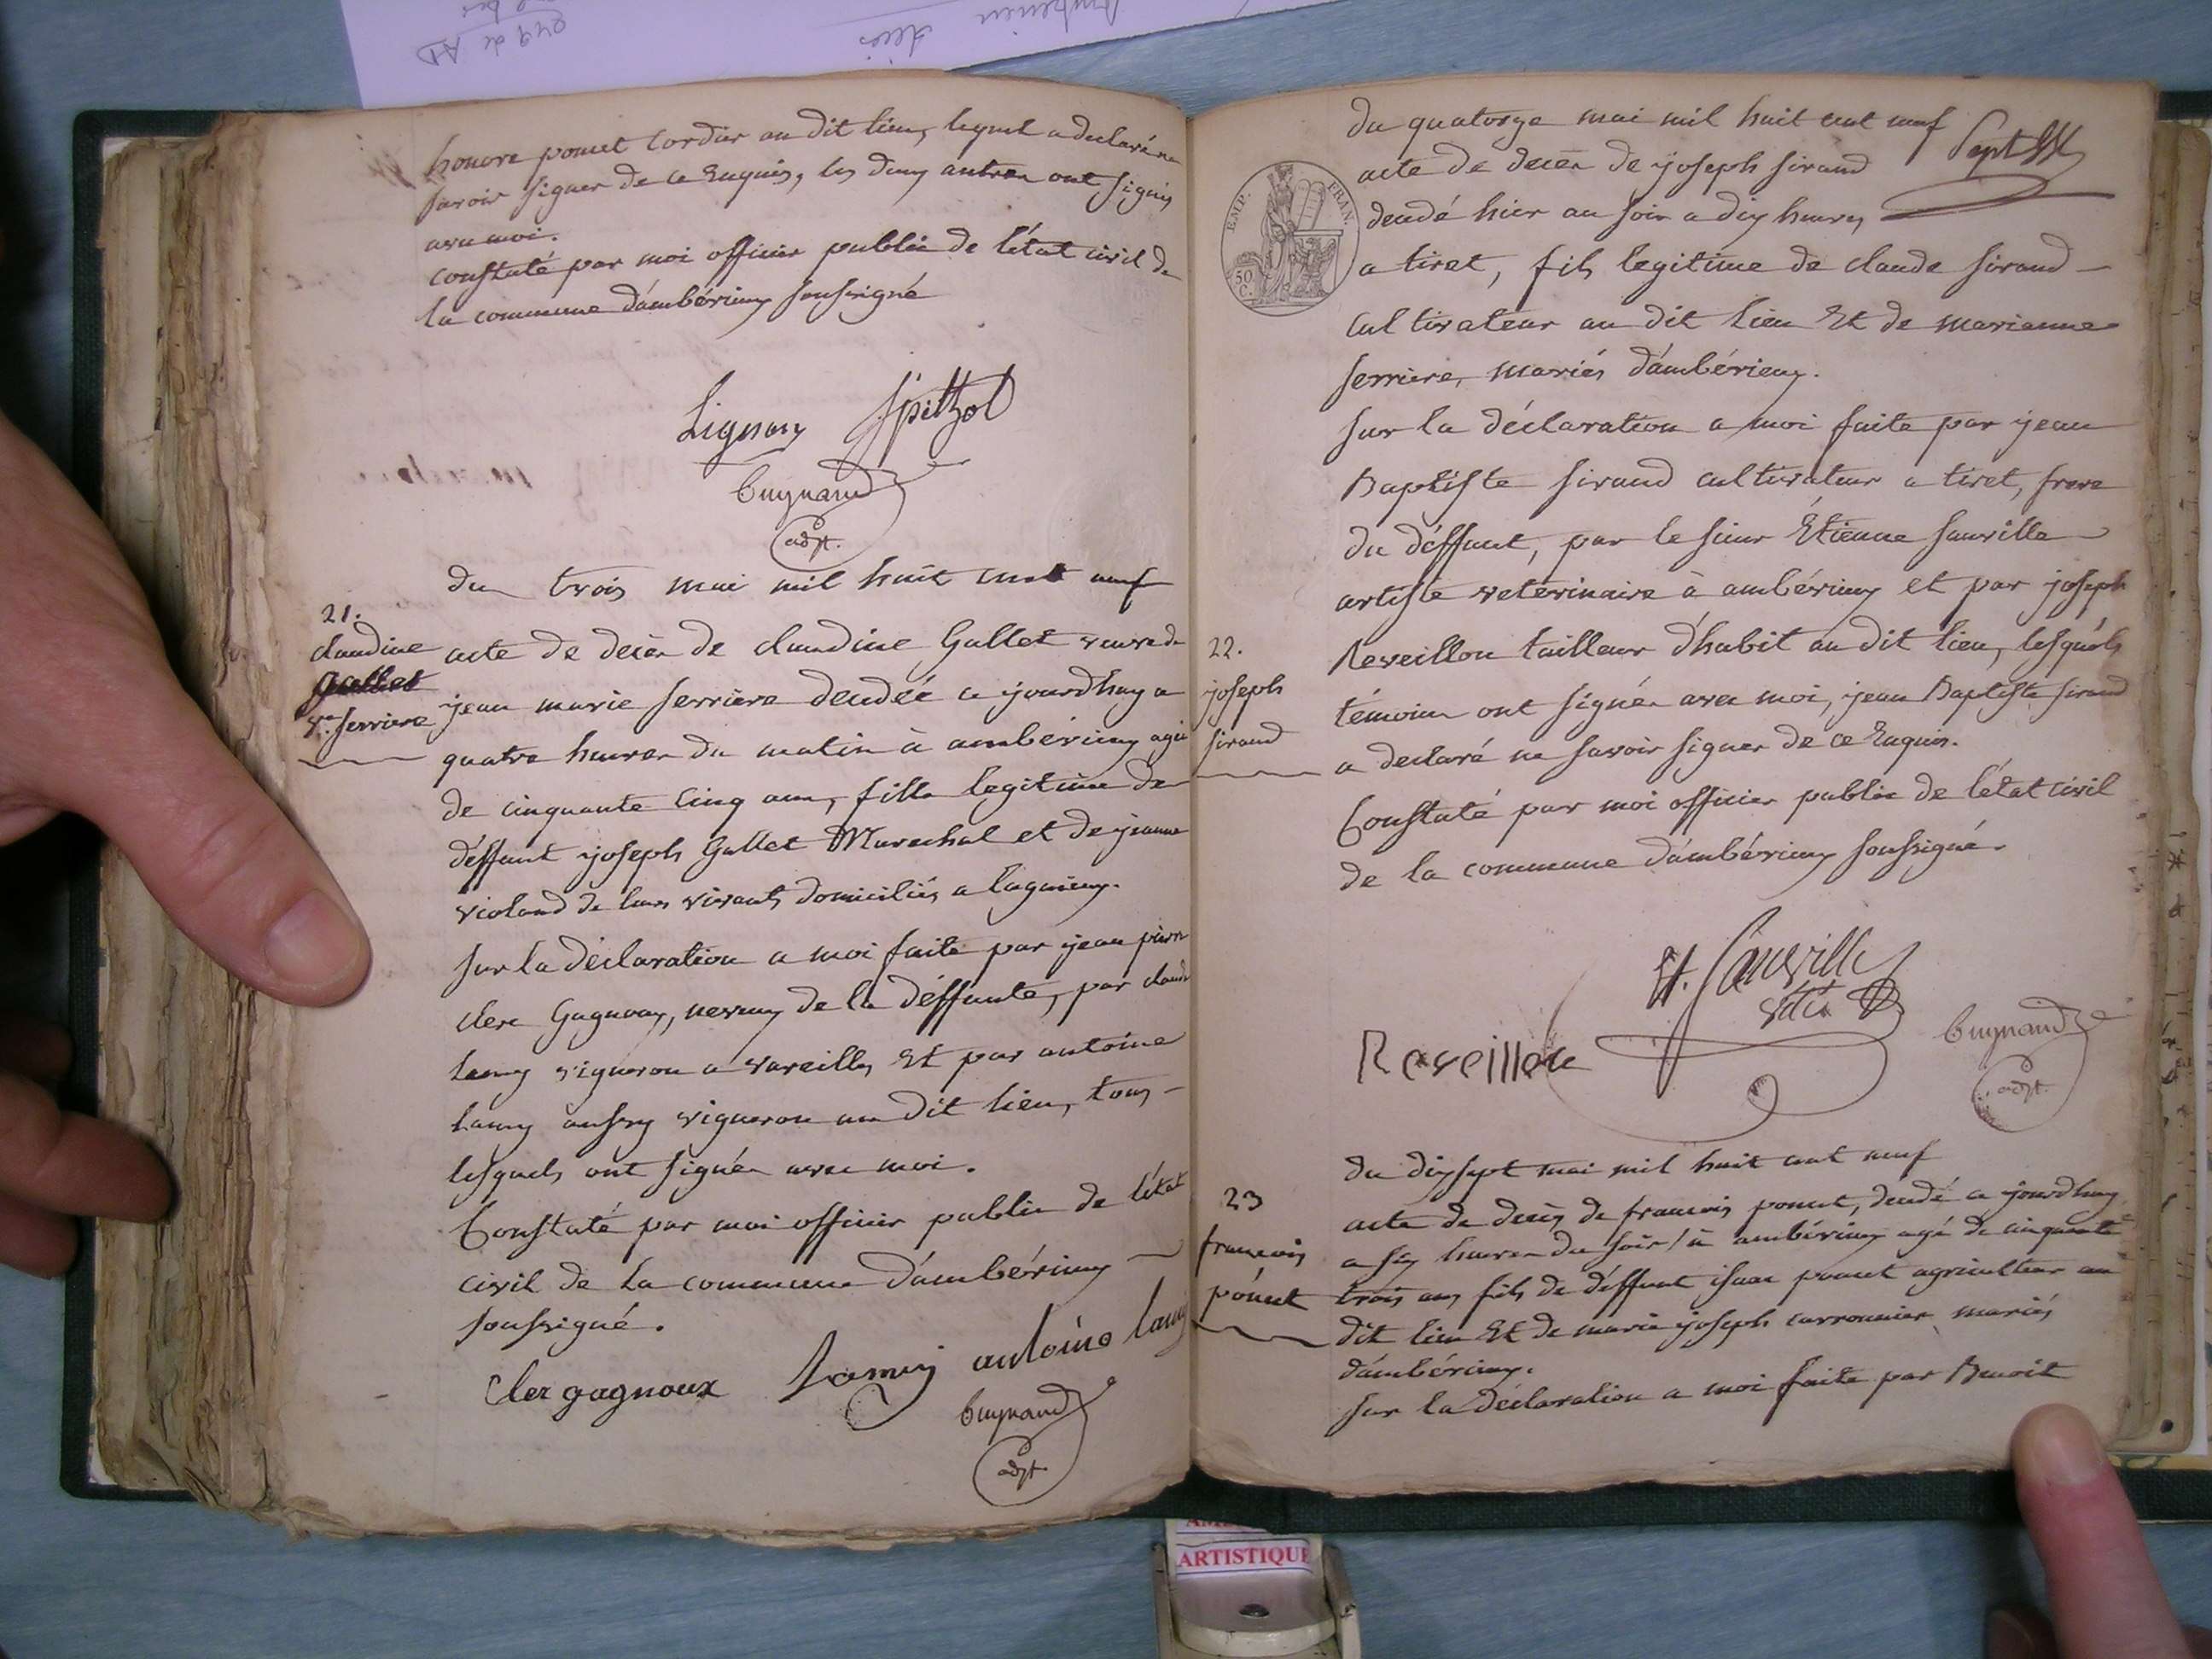 honore poncet cordier au dit lieu, lequel a declaré ne
savoir signer de ce Enquis, les deux autres ont signés
avec moi.
constaté par moi officier public de l'état civil de
la commune d'ambérieux soussigné
Lignon Spitzol
Cuynand
adjt.
du trois mai mil huit cent neuf
21.
claudine
Gallet
ve. serriere
acte de decès de claudine Gallet veuve de
jean marie serriere décédée ce jourdhuy a
quatre heures du matin à ambérieux agée
de cinquante cinq ans, fille legitime de
déffunt joseph Gallet Marechal et de jeanne
violand de leurs vivants domiciliés a lagnieux.
sur la déclaration a moi faite par jean pierre
clerc Gagnoux, neveux de la déffunte, par claude
lamy vigneron a vareilles Et par antoine
lamy aussy vigneron au dit lieu, tous
lesquels ont signés avec moi.
Constaté par moi officier public de l'état
civil de la commune d'ambérieux
soussigné.
cler gagnoux Lamy antoine lamy
Cuynand
adjt.
du quatorze mai mil huit cent neuf
Sept
EMP. FRAN.
50 C.
acte de decès de joseph sirand
décédé hier au soir a dix heures,
a tiret, fils legitime de claude sirand
cultivateur au dit lieu Et de marianne
serriere, mariés d'ambérieux.
sur la déclaration a moi faite par jean
Baptiste sirand cultivateur a tiret, frere
du déffunt, par le sieur Étienne sauville
artiste veterinaire à ambérieux et par joseph
22.
joseph
sirand
Reveillon tailleur d'habit au dit lieu, lesquels
témoins ont signés avec moi, jean Baptiste sirand
a declaré ne savoir signer de ce Enquis.
Constaté par moi officier public de l'état civil
de la commune d'ambérieux soussigné.
Et. Sauville
Reveillon
Cuynand
adjt.
du dixsept mai mil huit cent neuf
23
francois
poncet
acte de decès de francois poncet, décédé ce jourdhuy
a six heures du soir / à ambérieux agé de cinquante
trois ans fils de déffunt isaac poncet agriculteur au
dit lieu Et de marie joseph carronnier mariés
d'ambérieux.
sur la déclaration a moi faite par Benoit
ARTISTIQUE